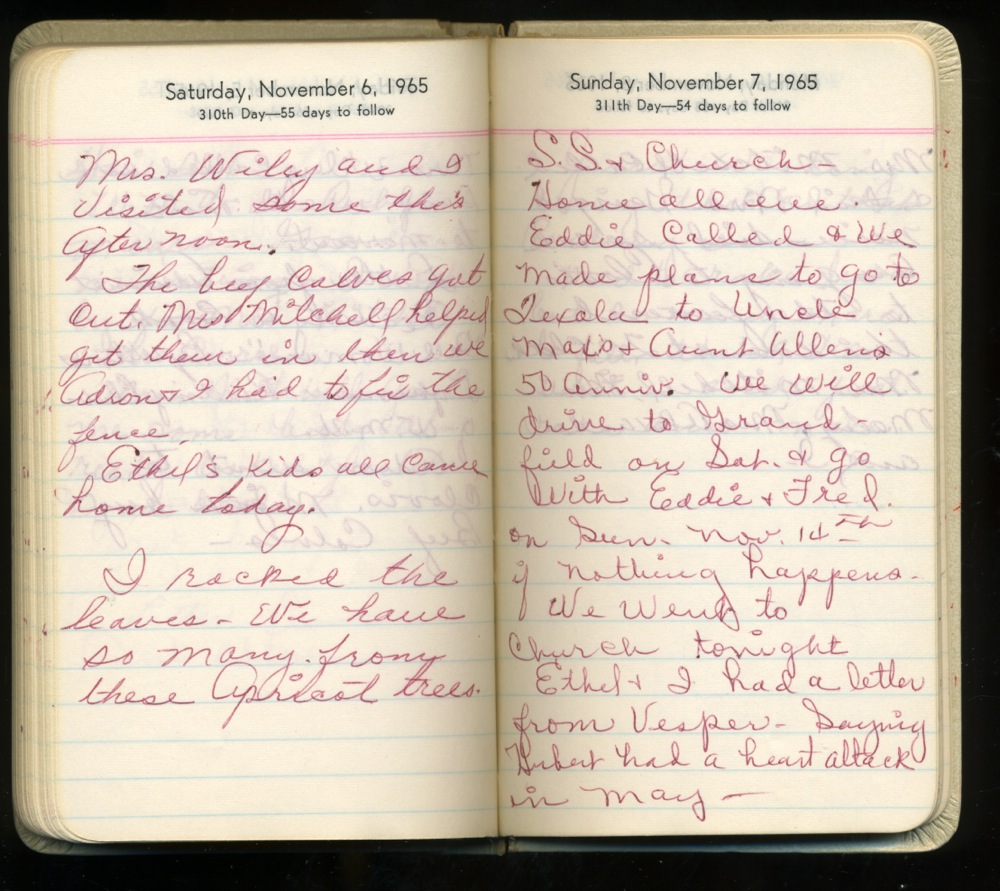 Saturday, November 6, 1965
310th Day—55 days to follow
Mrs. Wiley and I
visited some this
afternoon.
The big Calves got
out. Mrs Mitchell helped
get them in then we
Adron & I had to fix the
fence.
Ethel's kids all came
home today.
I racked the
leaves - We have
so many from
these Apricot trees.
Sunday, November 7, 1965
311th Day—54 days to follow
S.S. & Church -
Home all eve.
Eddie Called & We
made plans to go to
Texola to Uncle
Max's & Aunt Allena
50 Anniv. We will
drive to Grand-
field on Sat. & go
With Eddie & Fred.
on Sun. Nov. 14th
if nothing happens.
We Went to
Church tonight
Ethel & I had a letter
from Vesper - Saying
Hubert had a heart attack
in May —